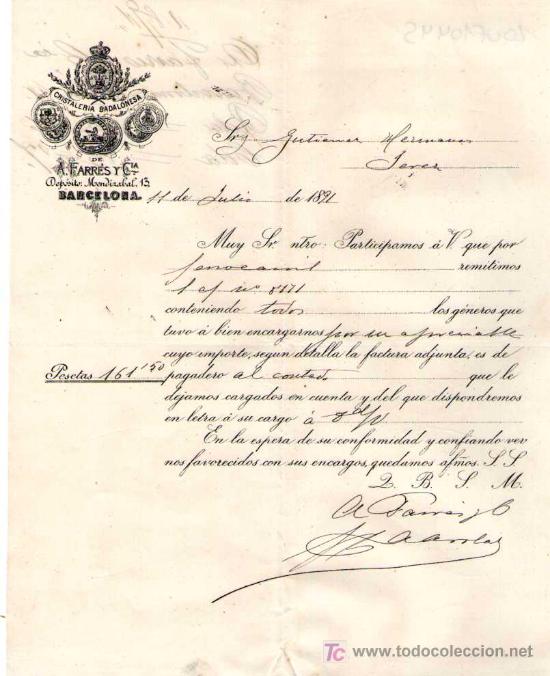 CRISTALERÍA BADALONESA
DE
A. FARRÉS Y Cía
Depósito: Mendizabal, 15
BARCELONA.
Srs Gutierrez Hermanos
Jerez
11 de Julio de 1891
Muy Sr. ntro: Participamos á V. que por
ferrocarril remitimos
1 cj nº 8171
conteniendo todos los géneros que
tuvo á bien encargarnos por su apreciable
cuyo importe, segun detalla la factura adjunta, es de
Pesetas 161'50 pagadero al contado que le
dejamos cargados en cuenta y del que dispondremos
en letra á su cargo á 8 d/v
En la espera de su conformidad y confiando ver-
nos favorecidos con sus encargos, quedamos afmos. S. S.
Q. B. S. M.
A Farrés y C
TC www.todocoleccion.net